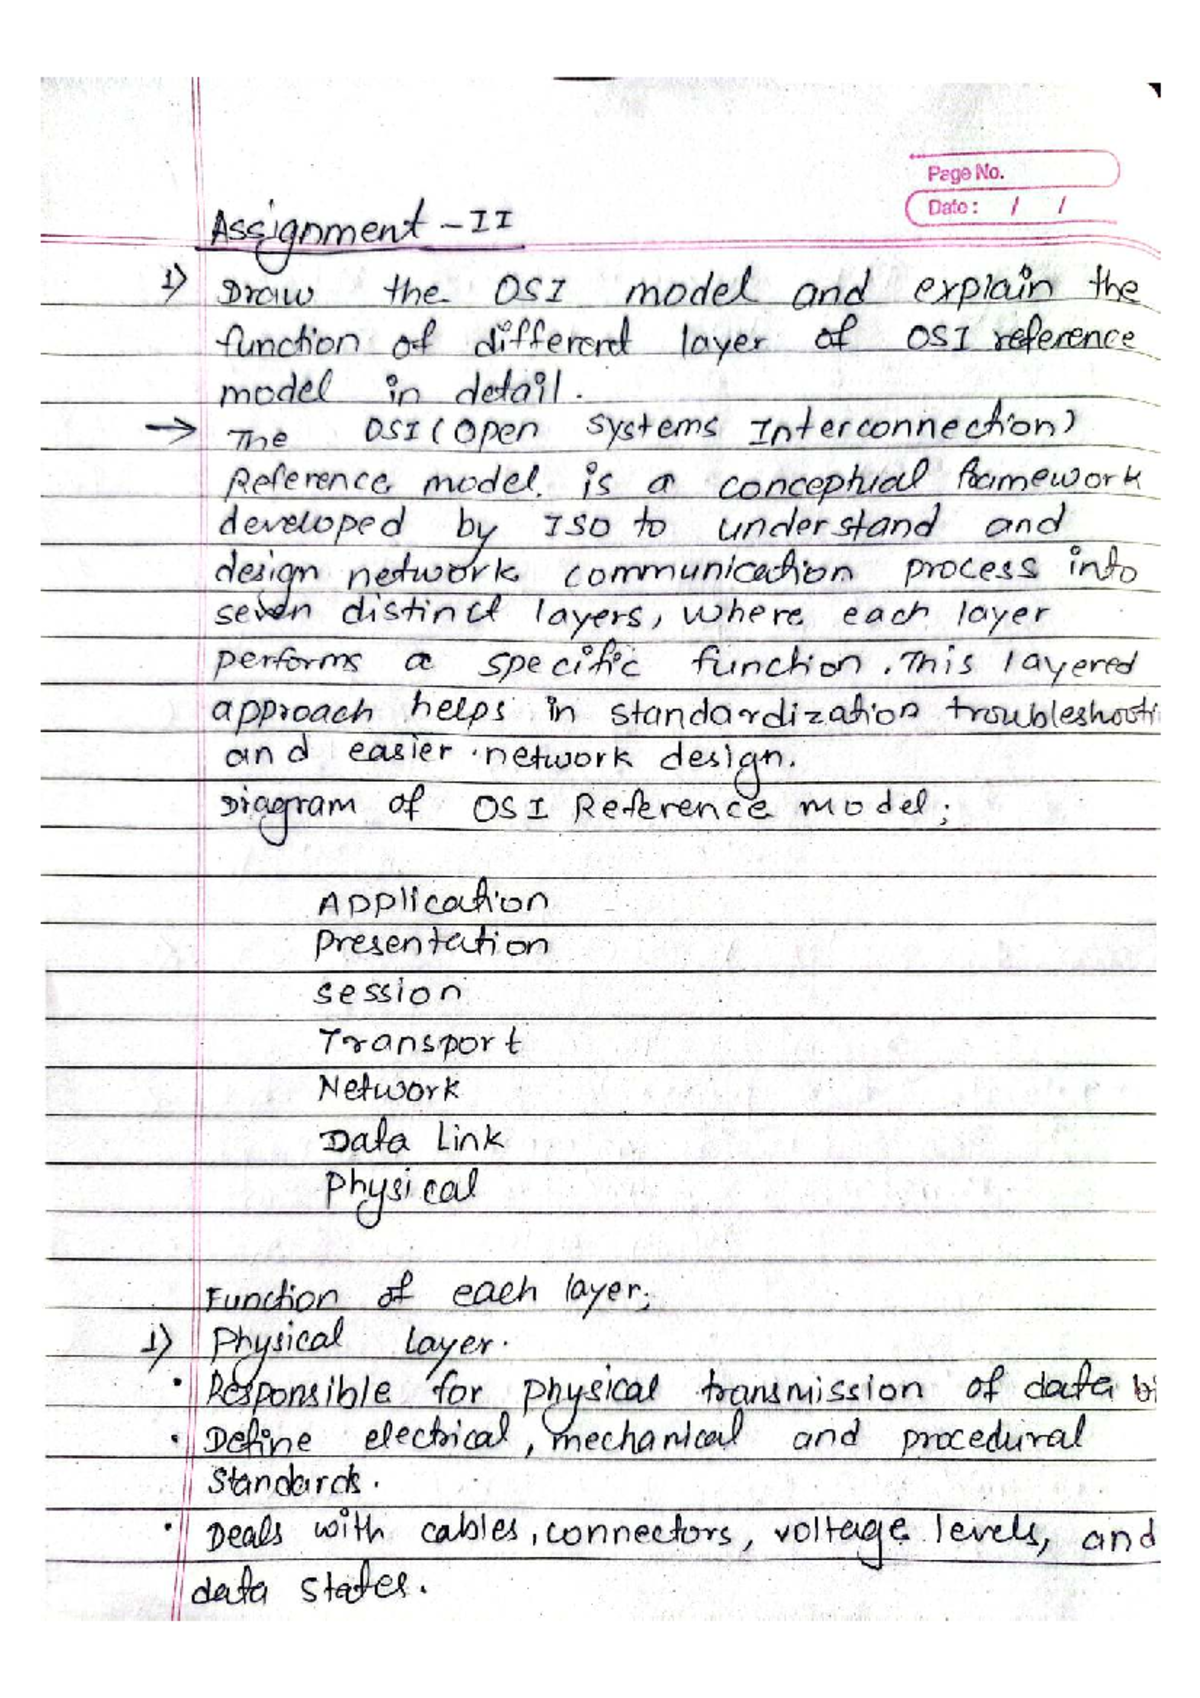 Page No.
Date : / /
Assignment - II
1) Draw the OSI model and explain the
function of different layer of OSI reference
model in detail.
→ The OSI (Open Systems Interconnection)
Reference model. is a conceptual framework
developed by ISO to understand and
design network communication process into
seven distinct layers, where each layer
performs a specific function. This layered
approach helps in standardization troubleshooti
and easier network design.
Diagram of OSI Reference model;
Application
Presentation
session
Transport
Network
Data Link
Physical
Function of each layer;
1) Physical Layer.
• Responsible for physical transmission of data bi
• Define electrical, mechanical and procedural
Standards.
• Deals with cables, connectors, voltage levels, and
data states.